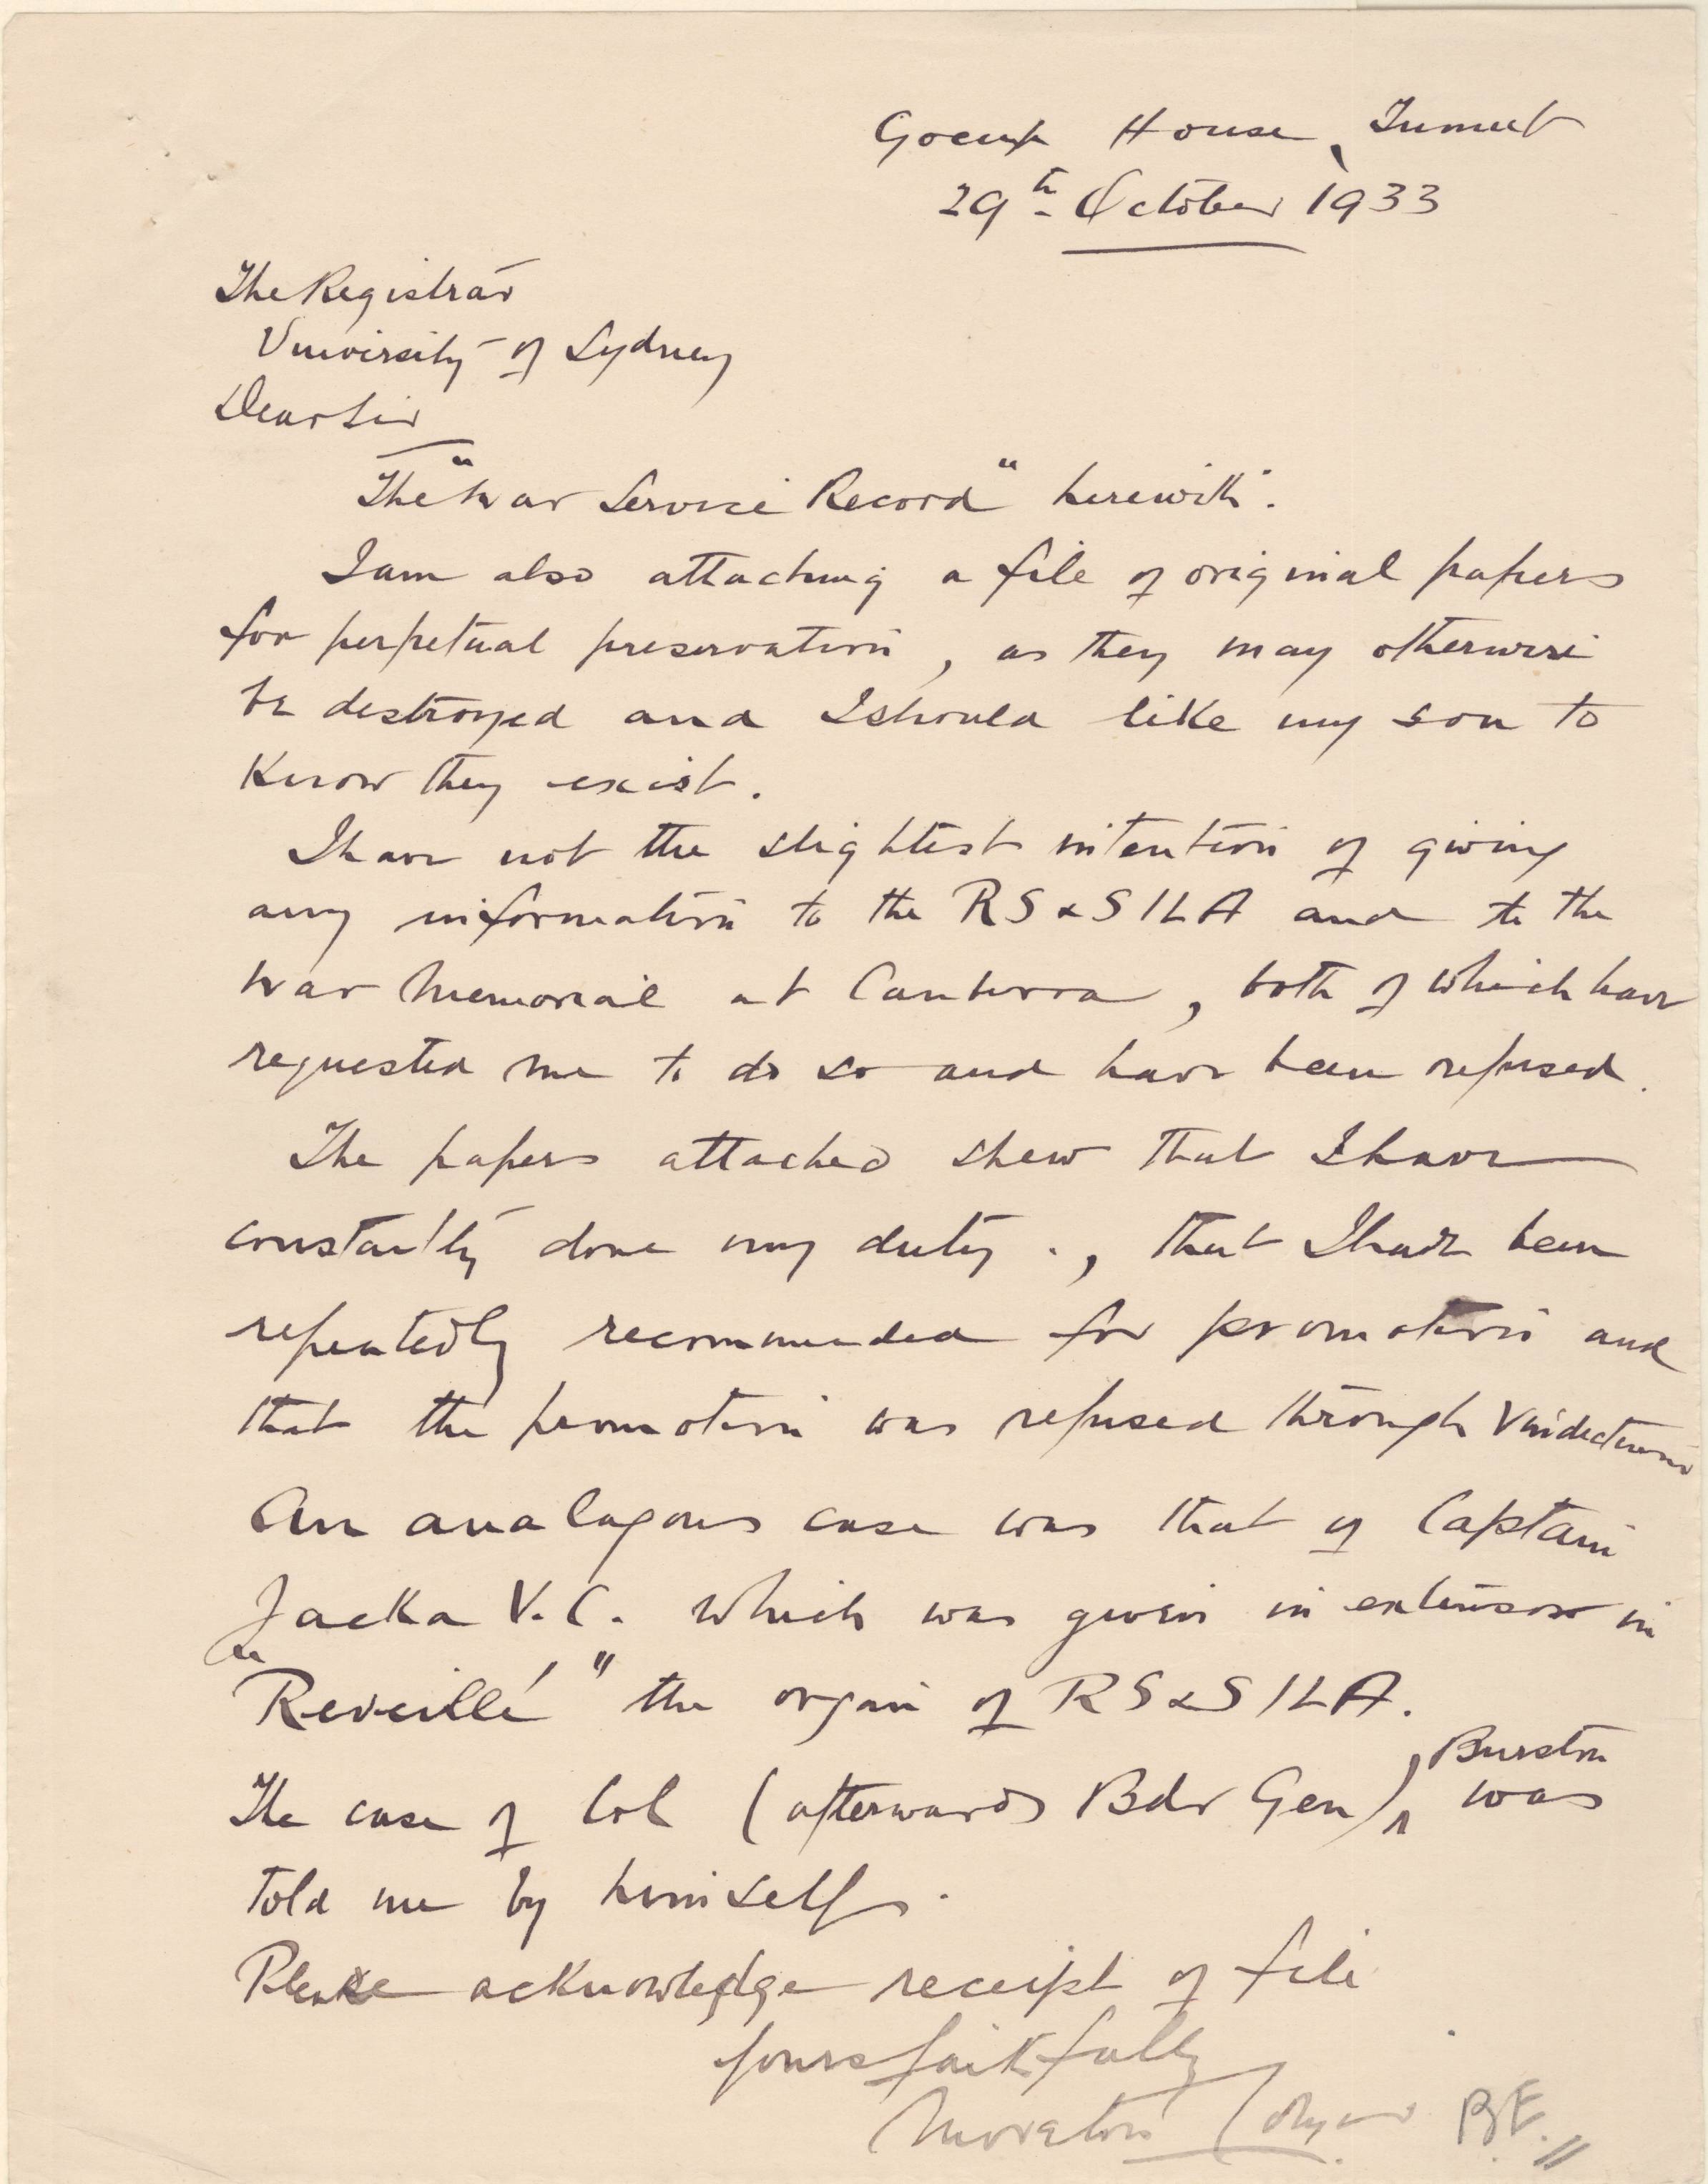 Gocup House, Tumut
29th October 1933
The Registrar
University of Sydney
Dear Sir
The "War Service Record" herewith.
I am also attaching a file of original papers
for perpetual preservation, as they may otherwise
be destroyed and I should like my son to
know they exist.
I have not the slightest intention of giving
any information to the RS & SILA and to the
War Memorial at Canberra, both of which have
requested me to do so and have been refused.
The papers attached shew that I have
constantly done my duty ., that I have been
repeatedly recommended for promotion and
that the promotion was refused through
An analagous case was that of Captain
Jacka V.C. which was given in extenso in
"Reveillé" the organ of RS & SILA.
The case of Col (afterwards Bdr Gen), Burston was
told me by himself.
Please acknowledge receipt of file
Yours faithfully
Moreton B.E.